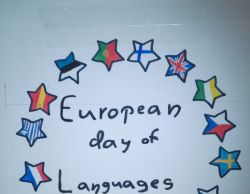 European
day of
Languages